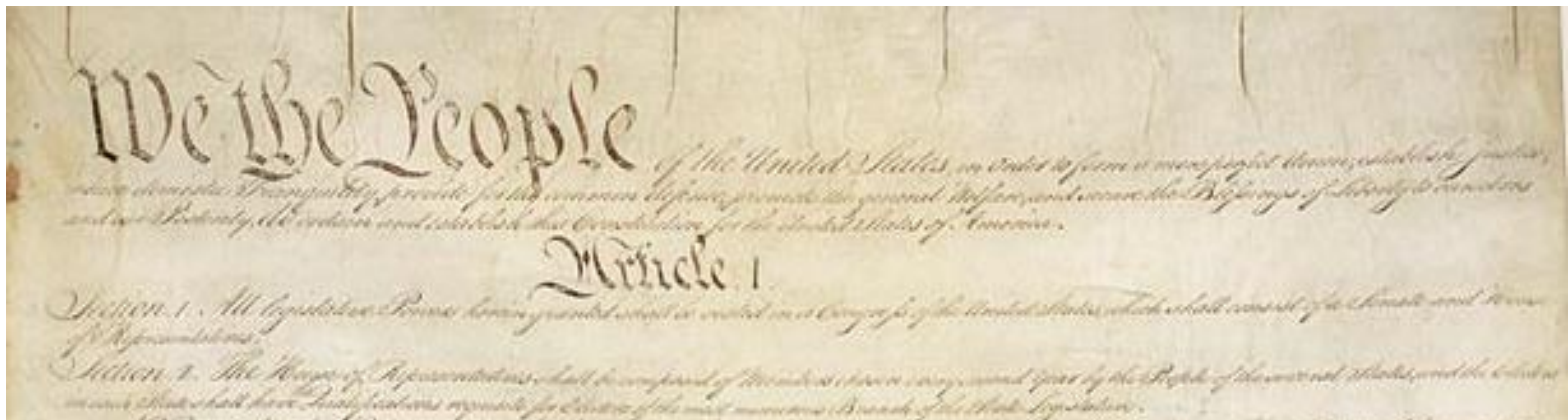 We the People of the United States, in Order to form a more perfect Union, establish Justice,
insure domestic Tranquility, provide for the common defence, promote the general Welfare, and secure the Blessings of Liberty to ourselves
and our Posterity, do ordain and establish this Constitution for the United States of America.
Article I.
Section 1. All legislative Powers herein granted shall be vested in a Congress of the United States, which shall consist of a Senate and House
of Representatives.
Section 2. The House of Representatives shall be composed of Members chosen every second Year by the People of the several States, and the Electors
in each State shall have Qualifications requisite for Electors of the most numerous Branch of the State Legislature.